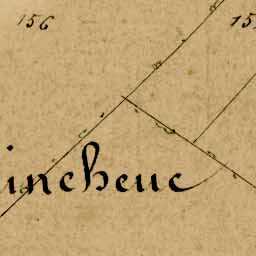 156
15
incheuc